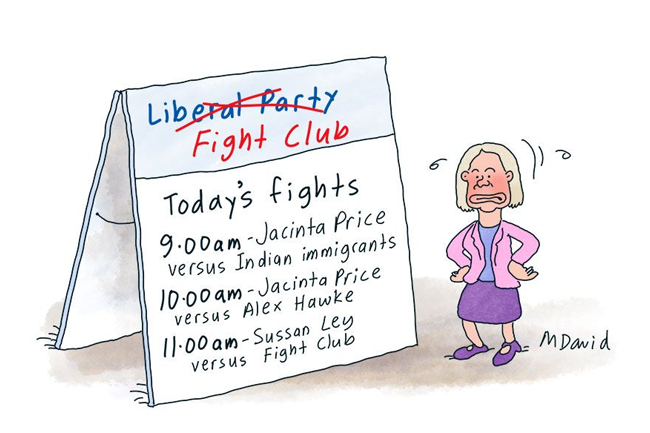 Liberal Party
Fight Club
Today's fights
9.00am - Jacinta Price
versus Indian immigrants
10.00am - Jacinta Price
versus Alex Hawke
11.00am - Sussan Ley
versus Fight Club
M David